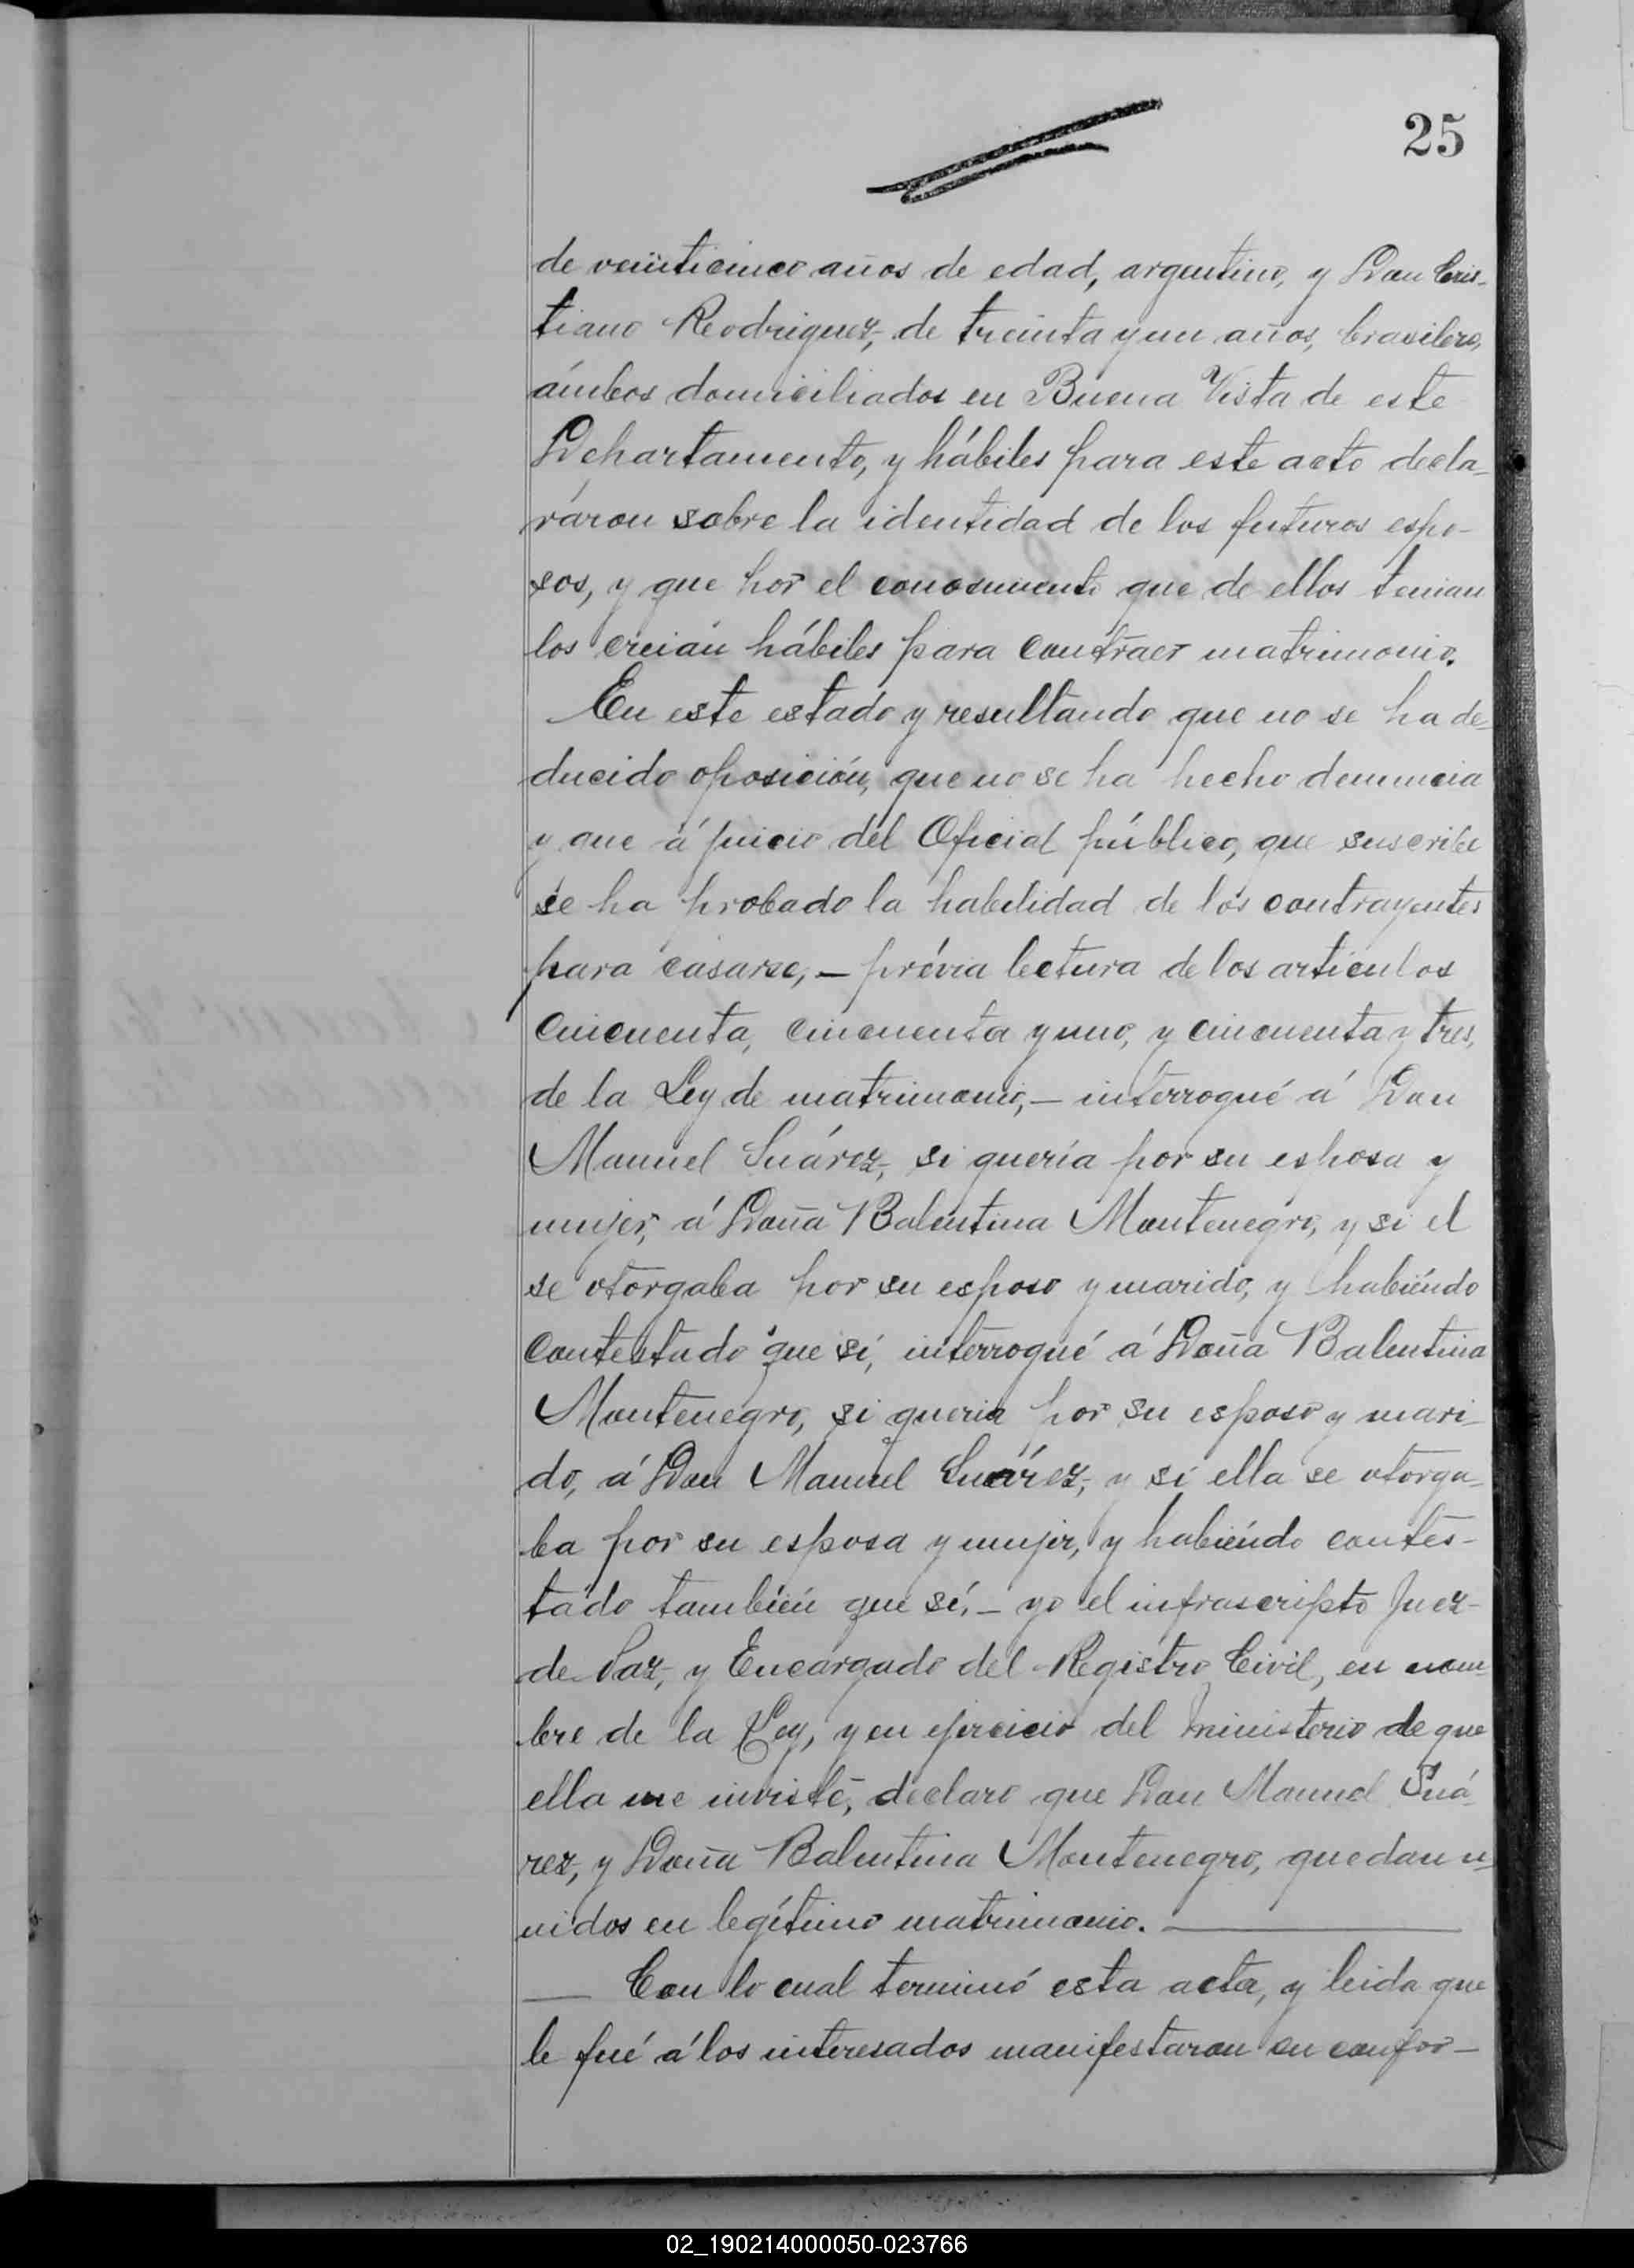 25
de veinticinco años de edad, argentino, y Don Cris-
tiano Rodriguez, de treinta y un años, brasilero,
ámbos domiciliados en Buena Vista de este
Departamento, y hábiles para este acto decla-
ráron sobre la identidad de los futuros espo-
sos, y que por el conosimiento que de ellos tenian
los creian hábiles para contraer matrimonio.
En este estado y resultando que no se ha de-
ducido oposición, que no se ha hecho denuncia
y que á juicio del Oficial público, que suscribe
se ha probado la habilidad de los contrayentes
para casarse, – prévia lectura de los articulos
cincuenta, cincuenta y uno, y cincuenta y tres,
de la Ley de matrimonio, – interrogué á Don
Manuel Suárez, si quería por su esposa y
mujer, á Doña Balentina Montenegro, y si el
se otorgaba por su esposo y marido, y habiéndo
contestado que sí, interrogué á Doña Balentina
Montenegro, si queria por su esposo y mari-
do, á Don Manuel Suárez, y si ella se otorga-
ba por su esposa y mujer, y habiéndo contes-
tado también que sí, – yo el infrascripto Juez
de Paz, y Encargado del Registro Civil, en nom-
bre de la Ley, y en ejercicio del ministerio de que
ella me inviste, declaro que Don Manuel Suá-
rez, y Doña Balentina Montenegro, quedan u-
nidos en legítimo matrimonio.
Con lo cual terminó esta acta, y leida que
le fué á los interesados manifestaron su confor-
02_190214000050-023766